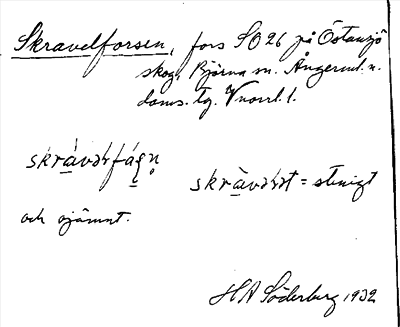 Skravelforsen, fors SO 26 på Östansjö
skog, Björna sn. Ångerml. n.
doms. tg. Vnorrl. l.
skràvəɫfáʂn̥
skràvəɫət = stenigt
och ojämnt.
H A Söderberg 1932